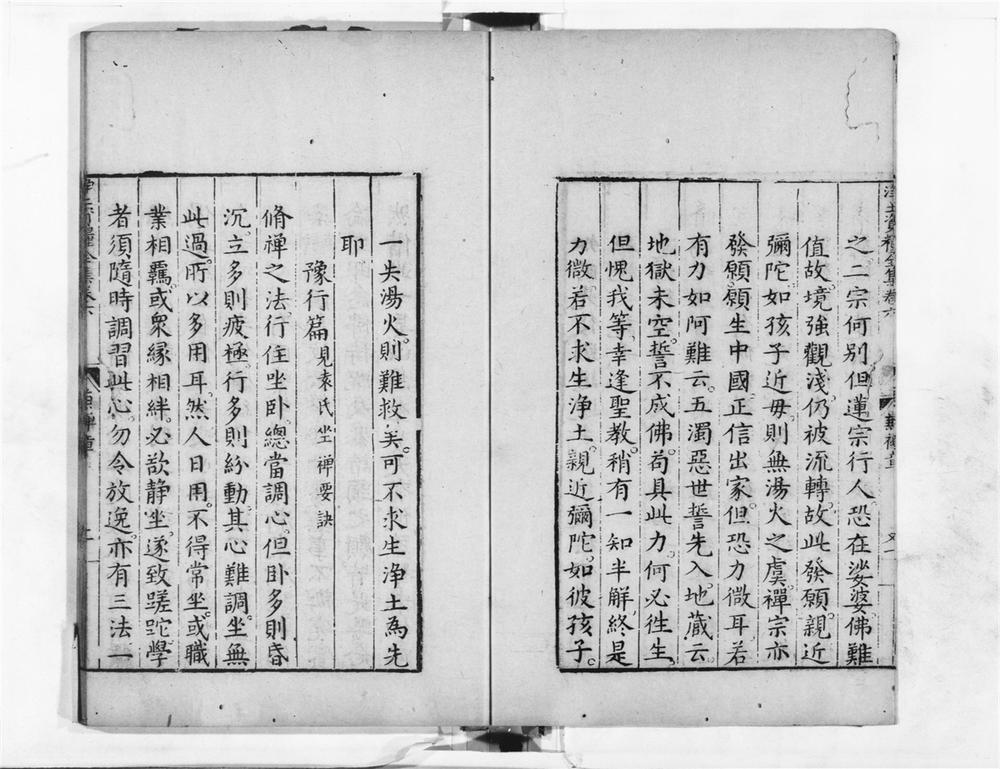 淨土資糧全集卷六
之二宗何别但蓮宗行人恐在娑婆佛難
值故境強觀淺仍被流轉故此發願親近
彌陀如孩子近毋則無湯火之虞禪宗亦
發願願生中國正信出家但恐力微耳若
有力如阿難云五濁惡世誓先入地藏云
地獄未空誓不成佛苟具此力何必徃生
但愧我等幸逢聖教稍有一知半解終是
力微若不求生浄土親近彌陀如彼孩子
一失湯火則難救矣可不求生浄土為先
耶
豫行篇見袁氏坐禪要訣
脩禅之法行住坐卧總當調心但卧多則昏
沉立多則疲極行多則紛動其心難調坐無
此過所以多用耳然人日用不得常坐或職
業相羈或衆縁相絆必欲静坐遂致蹉跎學
者須隨時調習此心勿令放逸亦有三法一